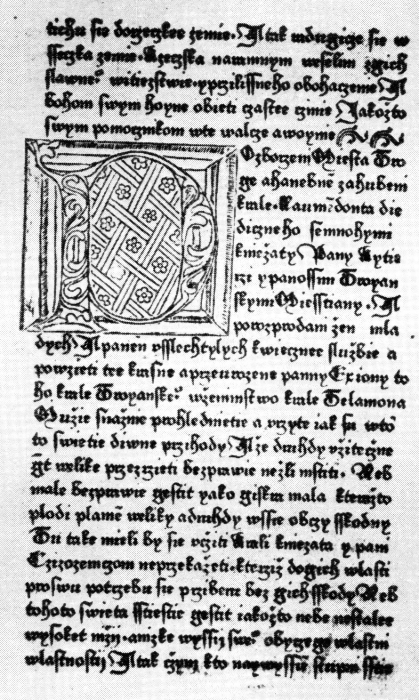 tichu sie zemie. A tak sie w
sseczka zemie. Rzeczska naramnym weselim zgich
slawneº witiezstwie. yprzilissneho obohaczenie A
bohom swym hoyne obieti czastee cznie Jakozto
swym pomocznikom wte walcze awoynie
D Ozborzeni Miesta Tro
ge ahanebne zahubeni
krale. Laumedonta die
diczneho semnohymi
kniezaty Pany Rytie
rzi ypanossim Troyan
skymi Miesstiany. A
powzprodani zen mla
dych A panen vsslechtylych kwieczneе sluzbie a
powzieti tee krasne apreurozene panny Exiony to
ho krale Troyanskeº wzeninstwo krale Telamona
Muzie snazne prohlednietie a vrzyte iak su wto
to swietie diwne przihody A ze druhdy vzitecznie
gt welike przezrzieti bezprawie nezli mstiti. Neb
male bezprawie gestit yako giskra mala kterazto
plodi plamen weliky adruhdy wssie obczy sskodny
Tu take mieli by sie vcziti krali kniezata y pani
Czizozemczom neprzekazeti. kterziz dogich wlasti
proswu potrzebu sie przibern bez gichsskody Neb
tohoto swieta sstiestie gestit iakozto nebe nestalee
wysoket mzii. amzke wyssii sweº obyczege wlastni
wlastnosti A tak czym kto naywyssie stupn sstie